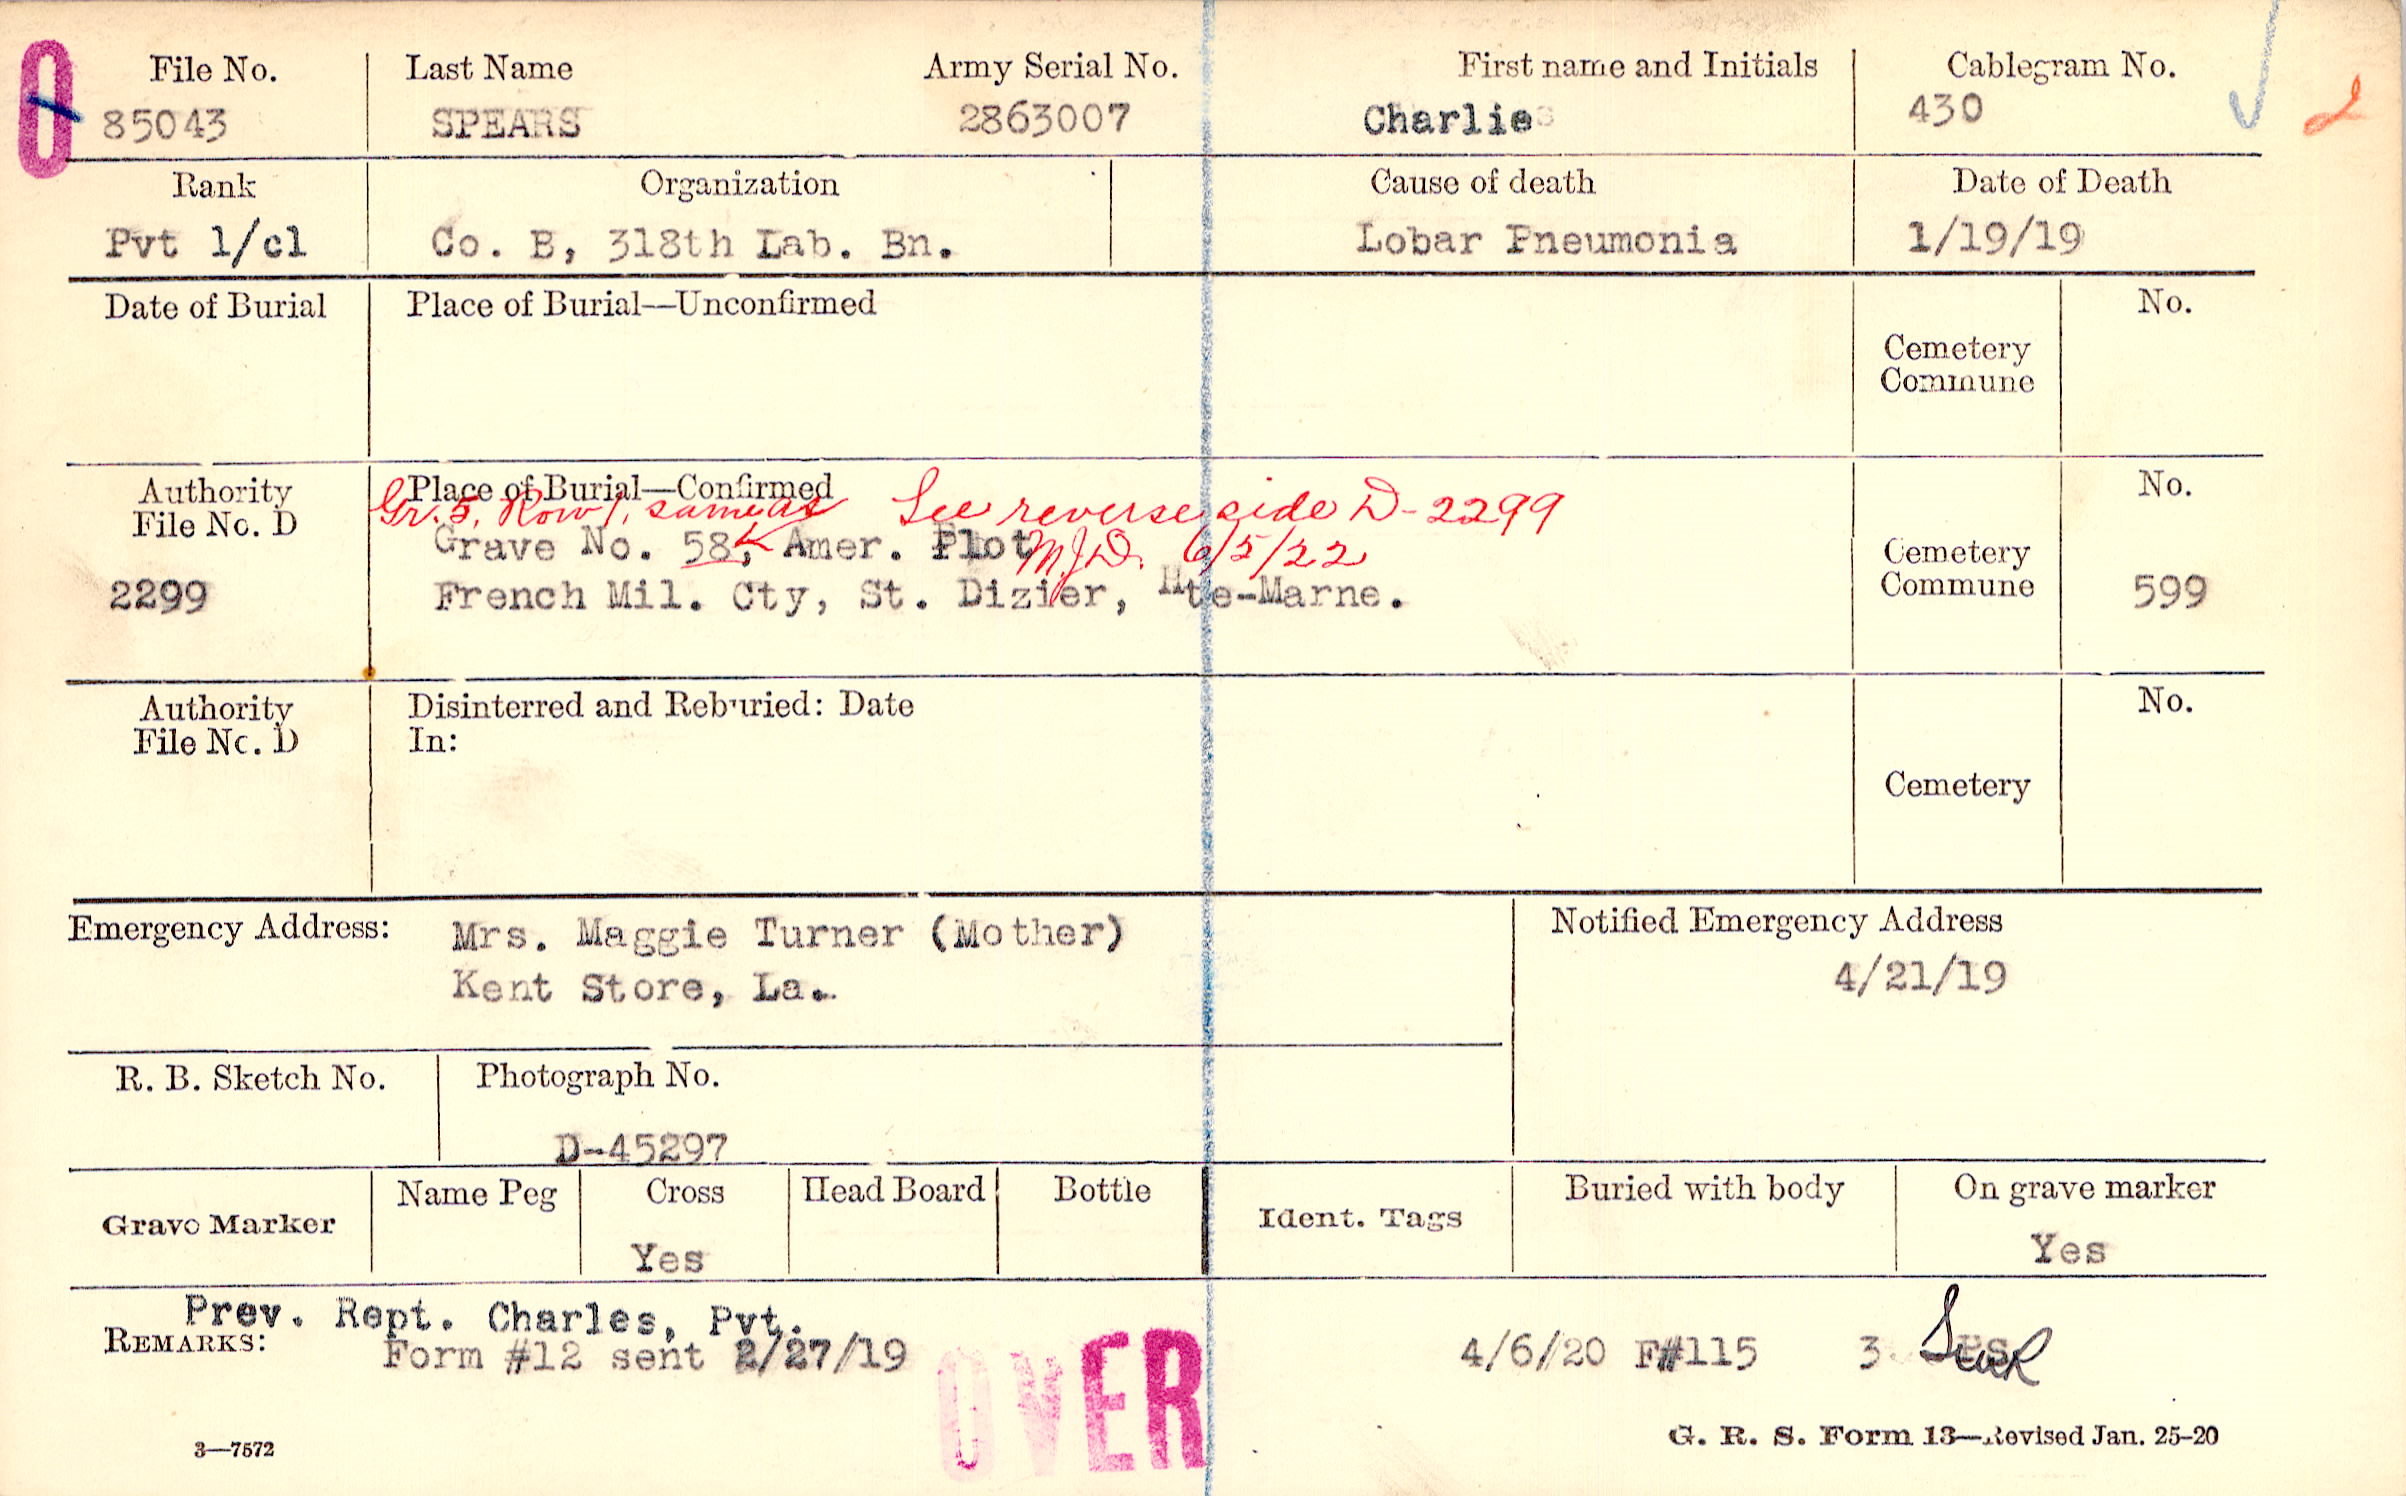 O
File No. Last Name Army Serial No. First name and Initials Cablegram No.
85043 SPEARS 2863007 Charlie 430
2
Rank Organization Cause of death Date of Death
Pvt 1/cl Co. B, 318th Lab. Bn. Lobar Pneumonia 1/19/19
Date of Burial Place of Burial—Unconfirmed No.
Cemetery
Commune
Authority Place of Burial—Confirmed No.
Gr. 5, Row 1, same as See reverse side D-2299
File No. D
Grave No. 58, Amer. Plot M.J.D. 6/5/22 Cemetery
2299 French Mil. Cty, St. Dizier, Hte-Marne. Commune 599
Authority Disinterred and Reburied: Date No.
File No. D In:
Cemetery
Emergency Address: Mrs. Maggie Turner (Mother) Notified Emergency Address
Kent Store, La. 4/21/19
R. B. Sketch No. Photograph No.
D-45297
Name Peg Cross Head Board Bottle Buried with body On grave marker
Grave Marker Ident. Tags
Yes Yes
Prev. Rept. Charles, Pvt.
REMARKS: Form #12 sent 2/27/19 4/6/20 F#115 3
OVER
3—7572 G. R. S. Form 13—Revised Jan. 25-20